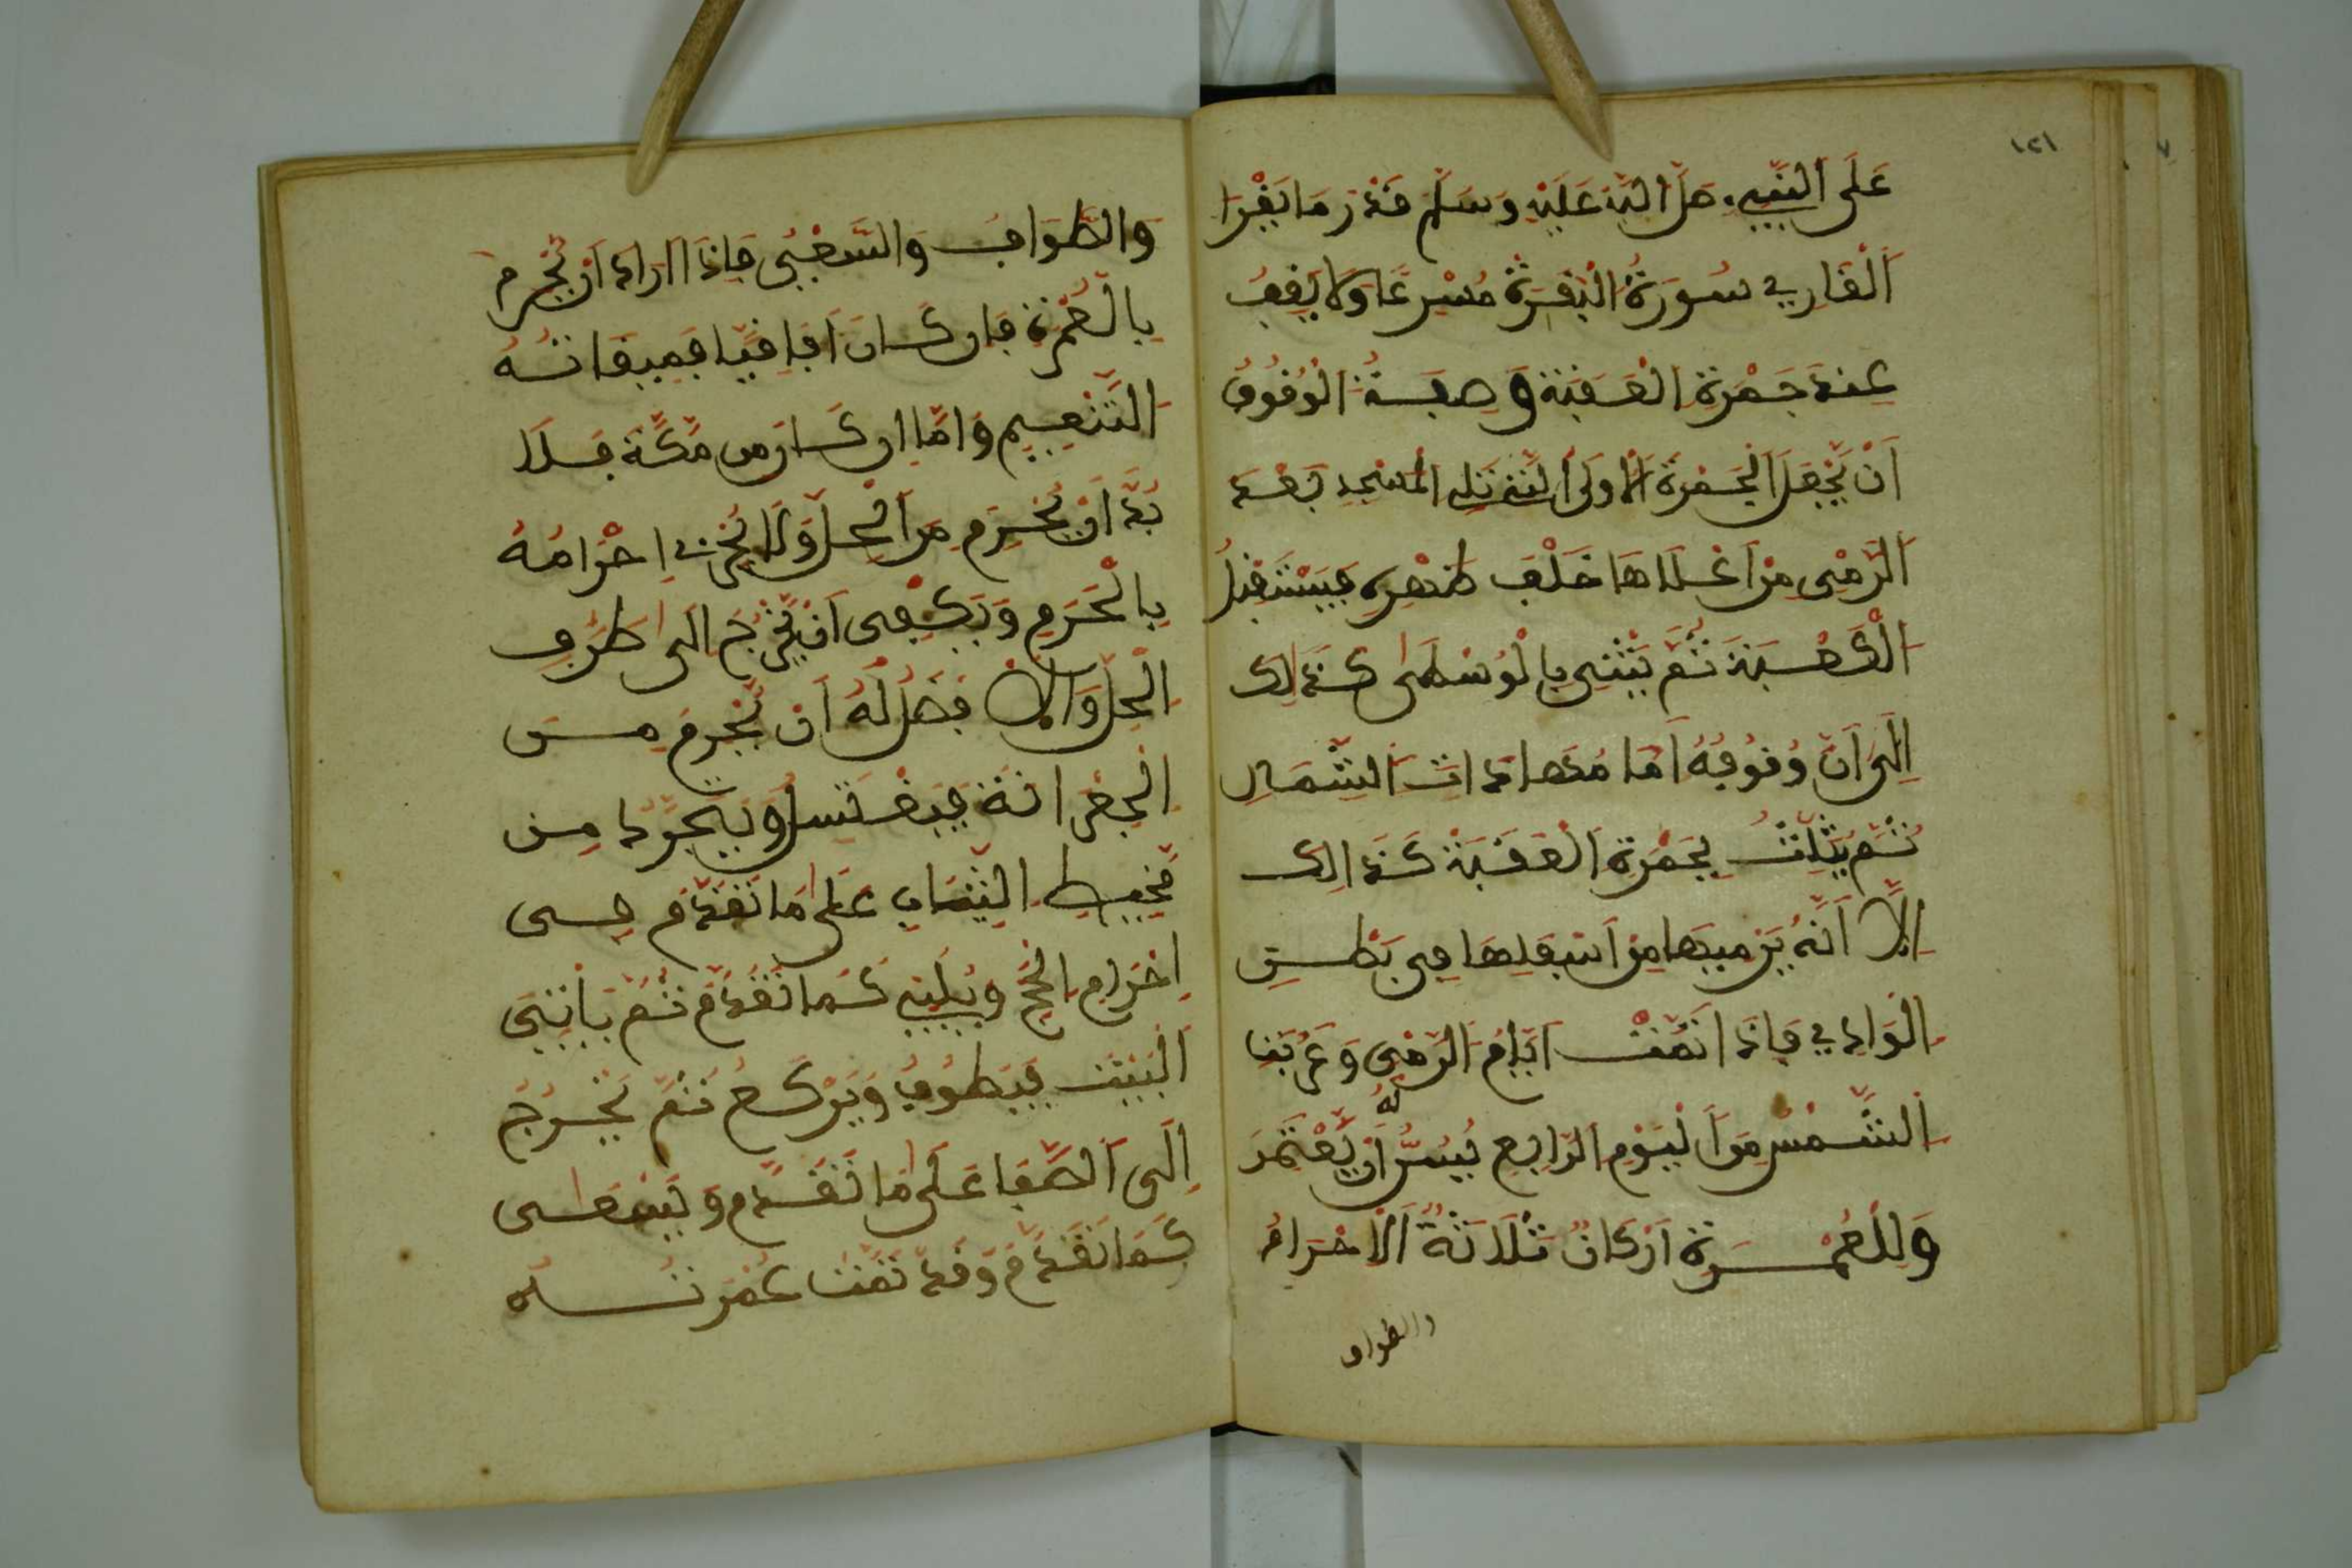 ١٢١
عَلَى النَّبِيِّ صَلَّى اللَّهُ عَلَيْهِ وَسَلَّمَ قَدْرَ مَا يَقْرَا
الْقَارِي سُورَةَ الْبَقَرَةِ مُسْرِعًا وَلَا يَقِفُ
عِنْدَ جَمْرَةِ الْعَقَبَةِ وَصِفَةُ الْوُقُوفِ
اَنْ يَجْعَلَ الْجَمْرَةَ الْأُولَى الَّتِي تَلِي الْمَسْجِدَ بَعْدَ
الرَّمْيِ مِنْ اَعْلَاهَا خَلْفَ ظَهْرِهِ فَيَسْتَقْبِلُ
الْكَعْبَةَ ثُمَّ يُثَنِّي بِالْوُسْطَى كَذَلِكَ
اِلَى اَنَّ وُقُوفَهُ اَمَامَهَا ذَاتَ الشِّمَالِ
ثُمَّ يُثَلِّثُ بِجَمْرَةِ الْعَقَبَةِ كَذَالِكَ
اِلَّا اَنَّهُ يَرْمِيهَا مِنْ اَسْفَلِهَا فِي بَطْنِ
الْوَادِي فَاِذَا تَمَّتْ اَيَّامُ الرَّمْيِ وَغَرُبَتْ
الشَّمْسُ مِنَ الْيَوْمِ الرَّابِعِ يُسَنُّ لَهُ اَنْ يَعْتَمِرَ
وَلِلْعُمْرَةِ اَرْكَانٌ ثَلَاثَةٌ الْاِحْرَامُ
والطواف
وَالطَّوَافُ وَالسَّعْيُ فَاِذَا اَرَادَ اَنْ يُحْرِمَ
بِالْعُمْرَةِ فَاِنْ كَانَ اَفَاقِيًّا فَمِيقَاتُهُ
التَّنْعِيمُ وَاَمَّا اِنْ كَانَ مِنْ مَكَّةَ فَلَا
بُدَّ اَنْ يُحْرِمَ مِنَ الْحِلِّ وَلَا يُجْزِي اِحْرَامُهُ
بِالْحَرَمِ وَيَكْفِي اَنْ يَخْرُجَ اِلَى طَرَفِ
الْحِلِّ وَالْاَفْضَلُ لَهُ اَنْ يُحْرِمَ مِنَ
الْجِعْرَانَةِ فَيَغْتَسِلُ وَيَتَجَرَّدُ مِنْ
مَخِيطِ الثِّيَابِ عَلَى مَا تَقَدَّمَ فِي
اِحْرَامِ الْحَجِّ وَيُلَبِّي كَمَا تَقَدَّمَ ثُمَّ يَأْتِي
الْبَيْتَ فَيَطُوفُ وَيَرْكَعُ ثُمَّ يَخْرُجُ
اِلَى الصَّفَا عَلَى مَا تَقَدَّمَ وَيَسْعَى
كَمَا تَقَدَّمَ وَقَدْ تَمَّتْ عُمْرَتُهُ